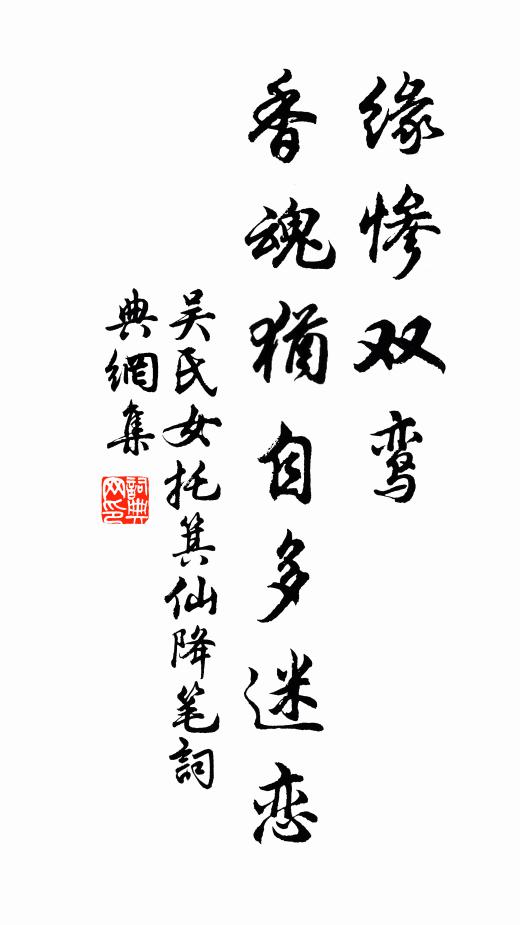 缘惨双鸾
香魂犹自多迷恋
吴氏女托箕仙降笔詞
典網集
詞典網印